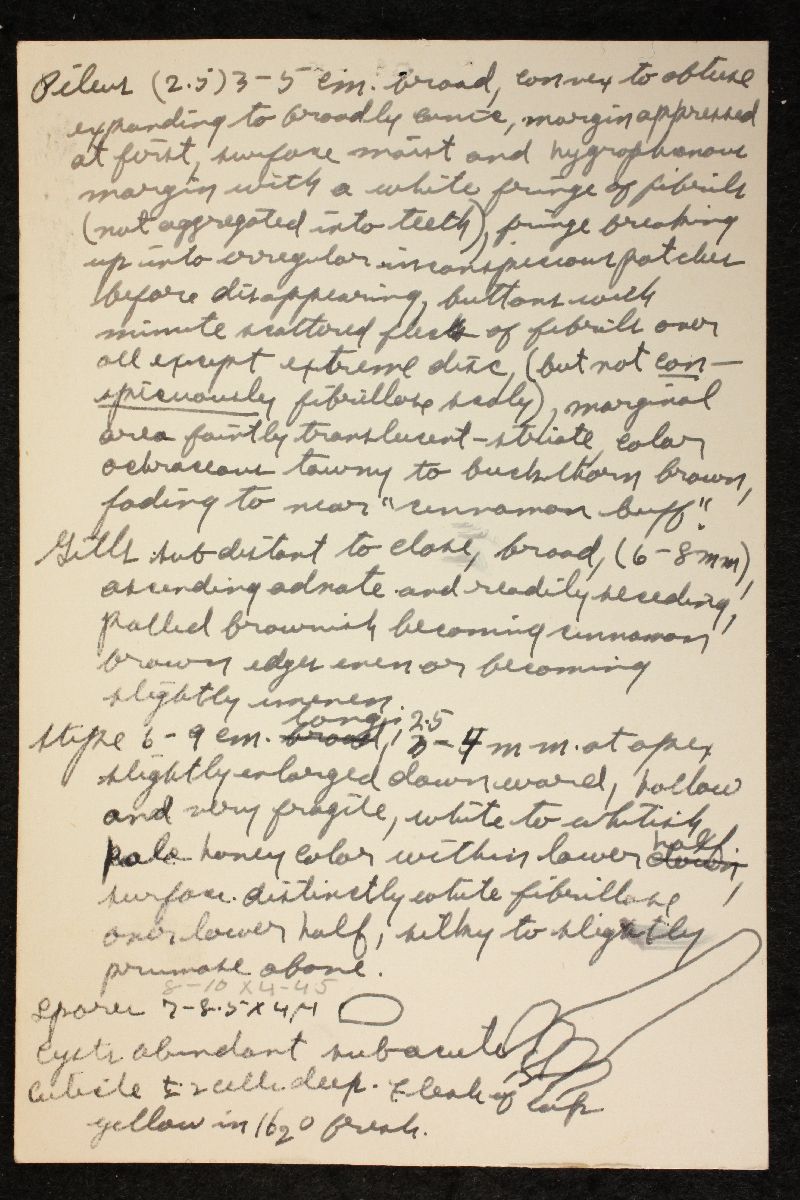 Pileus (2.5) 3-5 cm. broad, convex to obtuse
expanding to broadly conic, margin appressed
at first, surface moist and hygrophanous
margin with a white fringe of fibrils
(not aggregated into teeth), fringe breaking
up into irregular inconspicuous patches
before disappearing, buttons with
minute scattered flecks of fibrils over
all except extreme disc, (but not con-
spicuously fibrillose scaly), marginal
area faintly translucent-striate, color
ochraceous tawny to buckthorn brown,
fading to near "cinnamon buff".
Gills subdistant to close, broad, (6-8mm),
ascending adnate and readily seceding,
pallid brownish becoming cinnamon
brown edges even or becoming
slightly uneven
long, 2.5
stipe 6-9 cm. broad, 3-4 mm. at apex
slightly enlarged downward, hollow
and very fragile, white to whitish
half
pale honey color within lower down,
surface distinctly white fibrillose
over lower half, silky to slightly
pruinose above.
8-10 x 4-4.5
spores 7-8.5 x 4 µ
cysts abundant subacute
cuticle ± 2 cells deep. flesh of cap
yellow in H2O fresh.